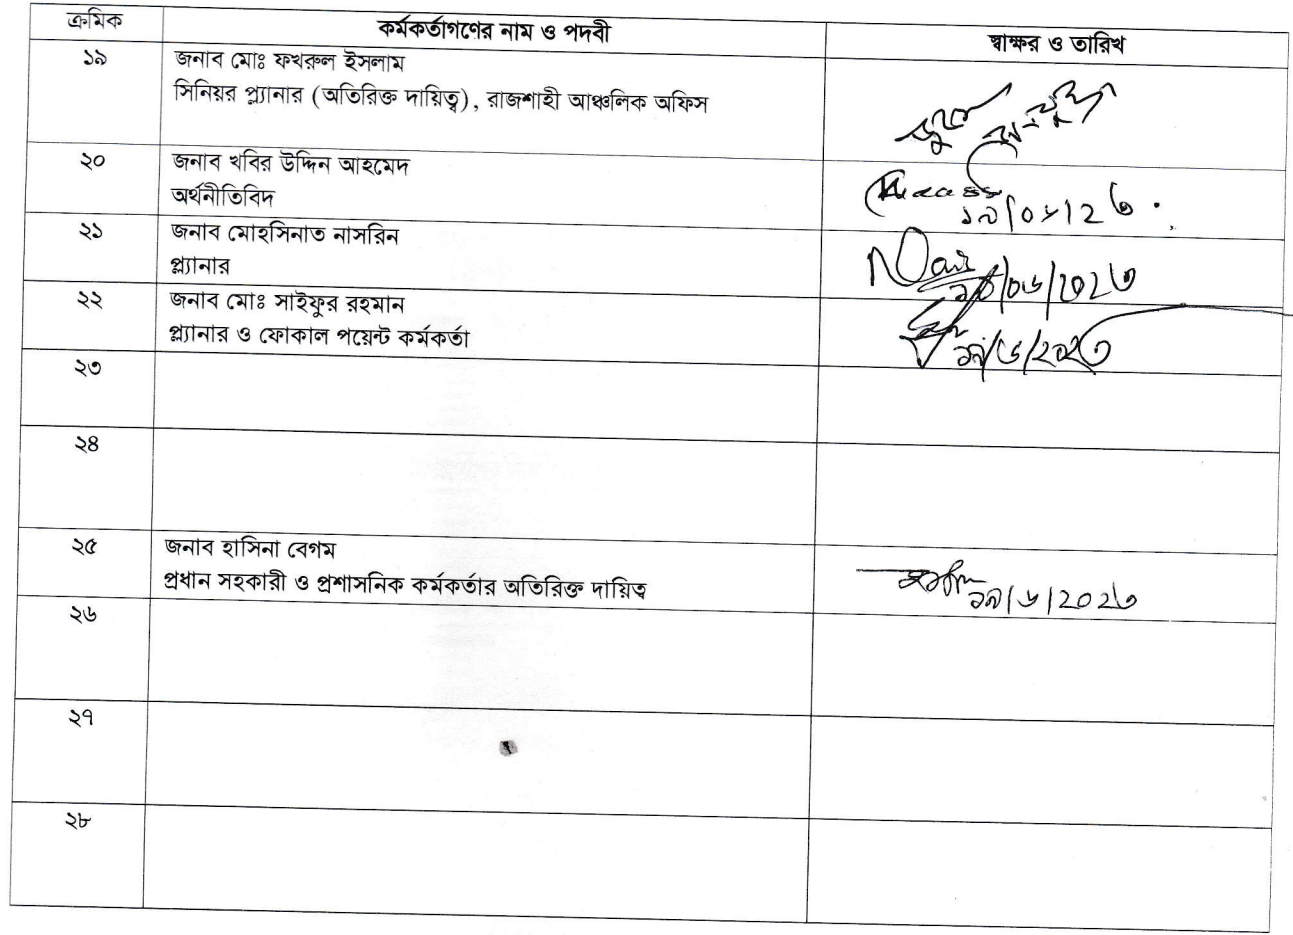 ক্রমিক কর্মকর্তাগণের নাম ও পদবী স্বাক্ষর ও তারিখ
১৯ জনাব মোঃ ফখরুল ইসলাম
সিনিয়র প্ল্যানার (অতিরিক্ত দায়িত্ব), রাজশাহী আঞ্চলিক অফিস
২০ জনাব খবির উদ্দিন আহমেদ
অর্থনীতিবিদ
২১ জনাব মোহসিনাত নাসরিন
প্ল্যানার
২২ জনাব মোঃ সাইফুর রহমান
প্ল্যানার ও ফোকাল পয়েন্ট কর্মকর্তা
১৯/৬/২০২৩
২৩
২৪
২৫ জনাব হাসিনা বেগম
প্রধান সহকারী ও প্রশাসনিক কর্মকর্তার অতিরিক্ত দায়িত্ব
১৯/৬/২০২৩
২৬
২৭
২৮